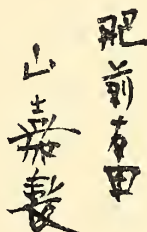 肥前有田
山嘉製